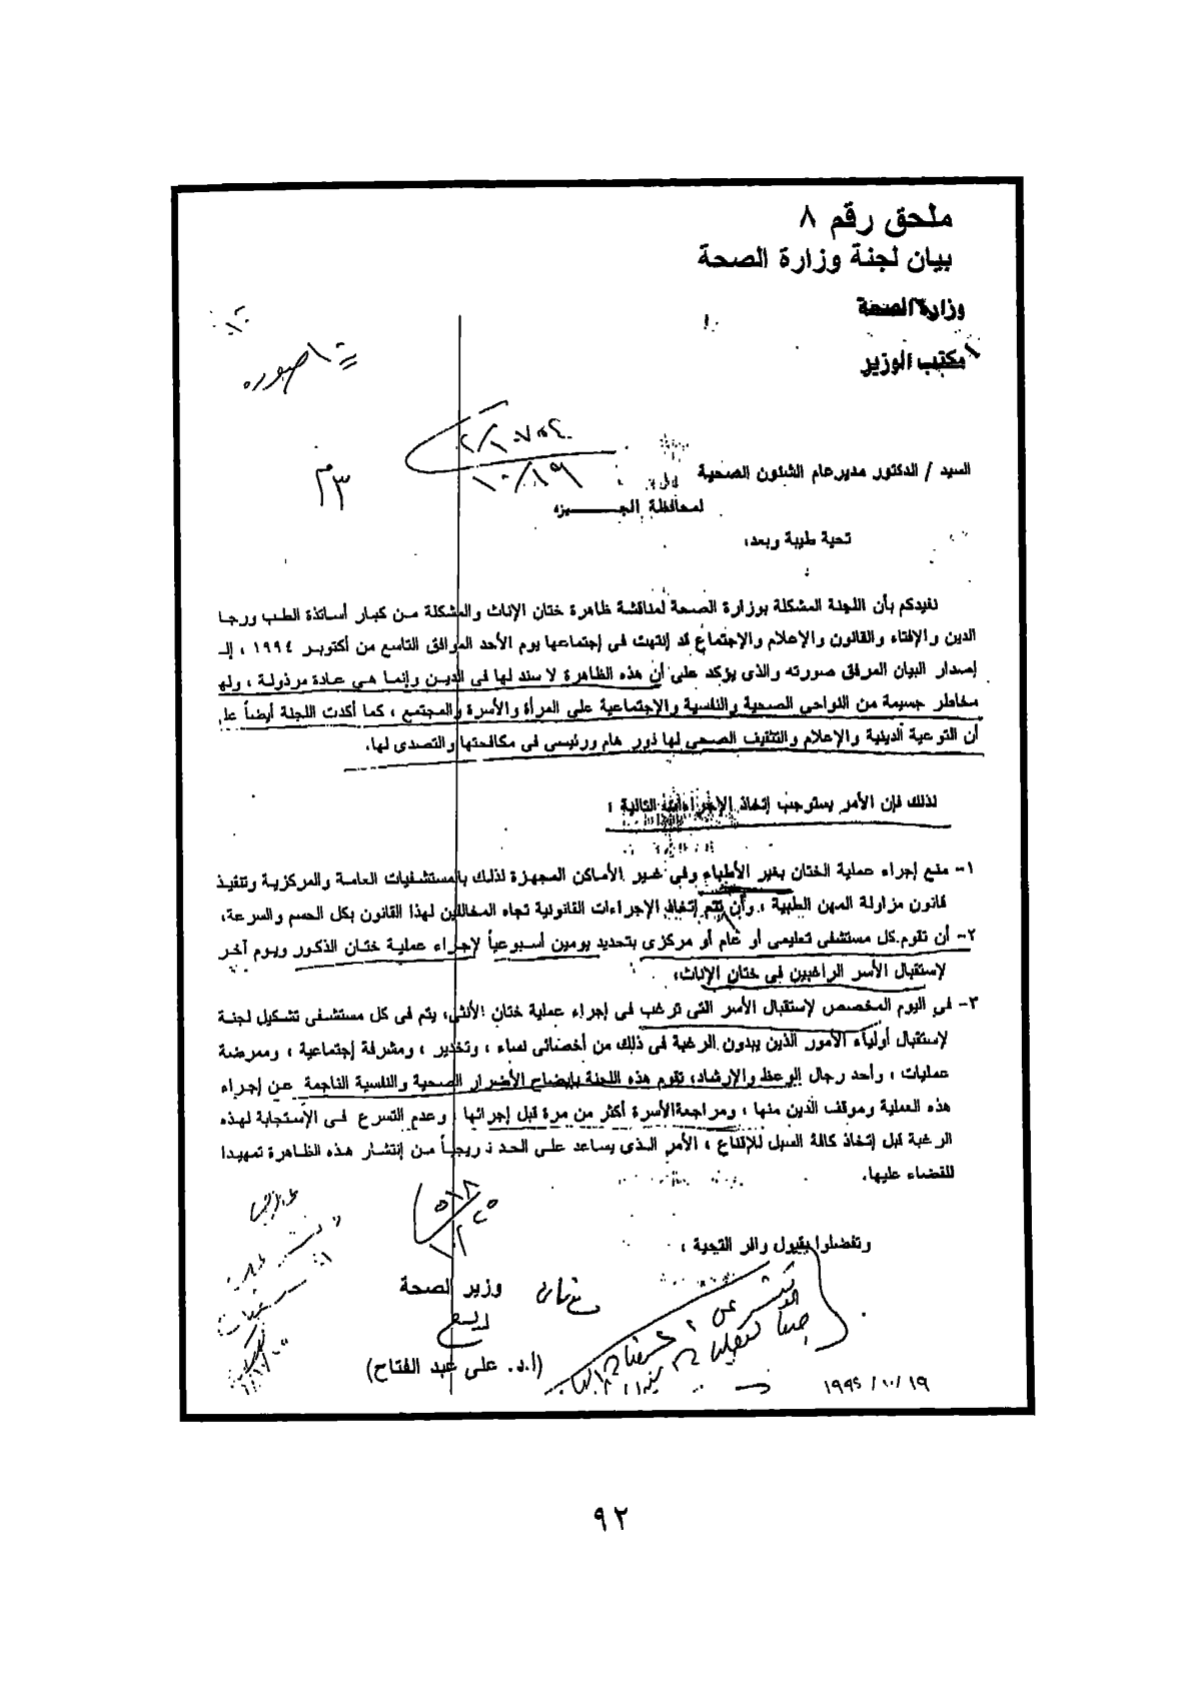 ملحق رقم ٨
بيان لجنة وزارة الصحة
وزارة الصحة
مكتب الوزير
صوره
٣م
١٩/١٠
السيد / الدكتور مدير عام الشئون الصحية
لمحافظة الجـــيزه
تحية طيبة وبعد،
نفيدكم بأن اللجنة المشكلة بوزارة الصحة لمناقشة ظاهرة ختان الإناث والمشكلة من كبار أساتذة الطب ورجا
الدين والإفتاء والقانون والإعلام والإجتماع قد إنتهت فى إجتماعها يوم الأحد الموافق التاسع من أكتوبر ١٩٩٤ ، إلـ
إصدار البيان المرفق صورته والذى يؤكد على أن هذه الظاهرة لا سند لها فى الدين وإنما هى عادة مرذولة ، ولها
مخاطر جسيمة من النواحي الصحية والنفسية والإجتماعية على المرأة والأسرة والمجتمع ، كما أكدت اللجنة أيضاً علـ
أن التوعية الدينية والإعلام والتثقيف الصحى لها دور هام ورئيسى فى مكافحتها والتصدى لها.
لذلك فإن الأمر يستوجب إتخاذ الإجراءات التالية :
١- منع إجراء عملية الختان بغير الأطباء وفي غير الأماكن المجهزة لذلك بالمستشفيات العامة والمركزية وتنفيذ
قانون مزاولة المهن الطبية ، وأن يتم إتخاذ الإجراءات القانونية تجاه المخالفين لهذا القانون بكل الحسم والسرعة،
٢- أن تقوم كل مستشفى تعليمى أو عام أو مركزى بتحديد يومين أسبوعياً لإجراء عملية ختان الذكور ويوم آخر
لإستقبال الأسر الراغبين فى ختان الإناث،
٣- فى اليوم المخصص لإستقبال الأسر التى ترغب فى إجراء عملية ختان الأنثى، يتم فى كل مستشفى تشكيل لجنة
لإستقبال أولياء الأمور الذين يبدون الرغبة فى ذلك من أخصائى نساء ، وتخدير ، ومشرفة إجتماعية ، وممرضة
عمليات ، وأحد رجال الوعظ والإرشاد، تقوم هذه اللجنة بإيضاح الأضرار الصحية والنفسية الناجمة عن إجراء
هذه العملية وموقف الدين منها ، ومراجعة الأسرة أكثر من مرة قبل إجرائها ، وعدم التسرع فى الإستجابة لهذه
الرغبة قبل إتخاذ كافة السبل للإقناع ، الأمر الذى يساعد على الحد تدريجياً من إنتشار هذه الظاهرة تمهيدا
للقضاء عليها.
وتفضلوا بقبول وافر التحية ،
وزير الصحة
(أ.د. على عبد الفتاح)
١٩/١٠/١٩٩٤
٩٢